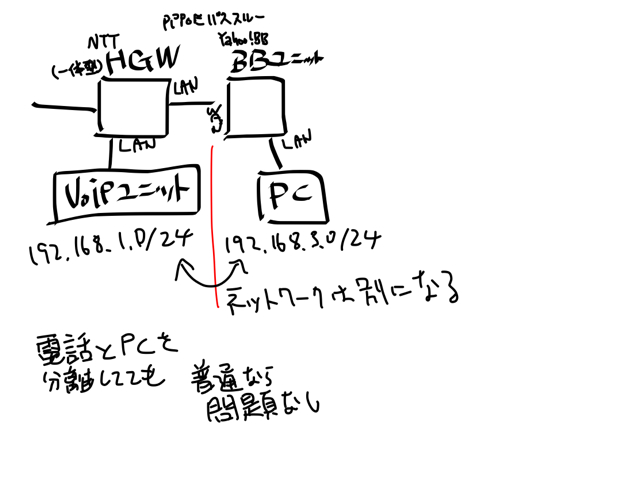 PPPoEパススルー
NTT
Yahoo!BB
(一体型)HGW
BBユニット
LAN
LAN
LAN
VoIPユニット
PC
192.168.1.0/24
192.168.3.0/24
ネットワークは別になる
電話とPCを
分離してても
普通なら
問題なし